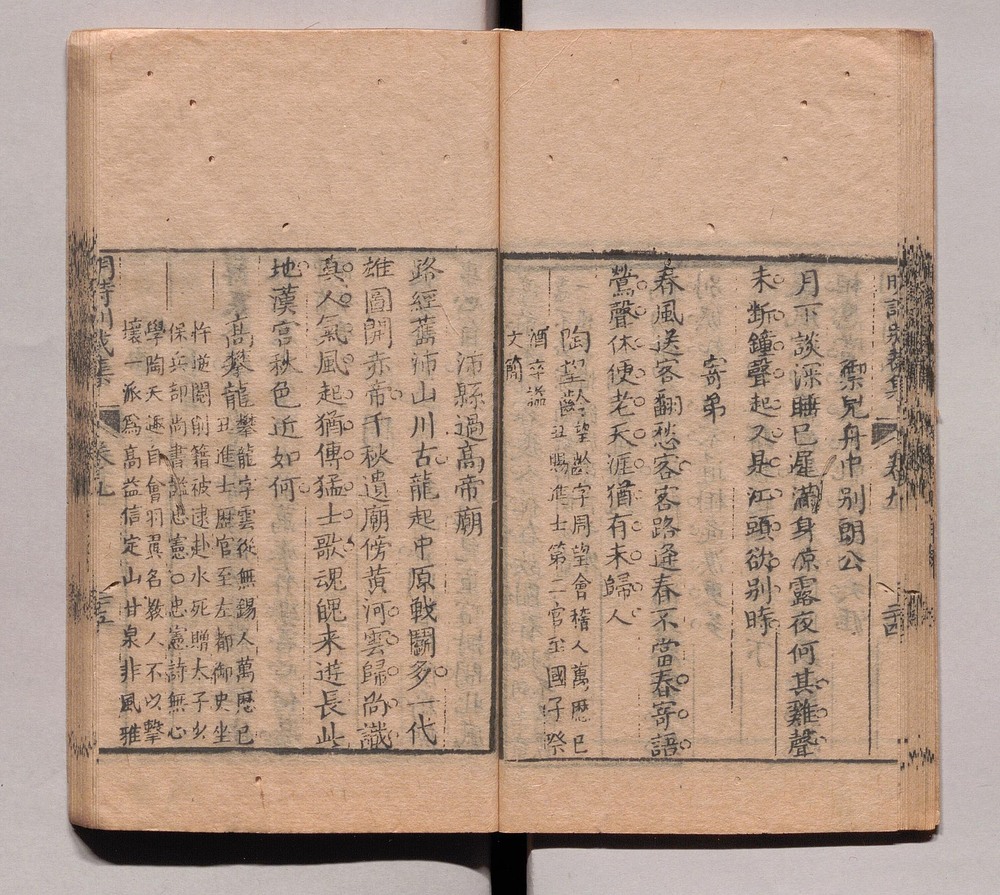 明詩別裁集 卷九 三十四
兒舟中別朗公
月下談深睡已遲滿身凉露夜何其雞聲
未斷鐘聲起又是江頭欲別時
寄弟
春風送客翻愁客客路逢春不當春寄語
鶯聲休便老天涯猶有未歸人
陶望齡
望齡字周望會稽人萬歷己
丑賜進士第二官至國子祭
酒卒諡
文簡
沛縣過高帝廟
路經舊沛山川古龍起中原戰鬭多一代
雄圖開赤帝千秋遺廟傍黃河雲歸尚識
真人氣風起猶傳猛士歌魂魄來遊長此
地漢宮秋色近如何
高攀龍
攀龍字雲從無錫人萬歷己
丑進士歷官至左都御史坐
忤逆閹削籍被逮赴水死贈太子少
保兵部尚書諡忠憲○忠憲詩無心
學陶天趣自會羽翼名教人不以擊
壤一派爲高益信定山甘泉非風雅
明詩別裁集 卷九 三十五